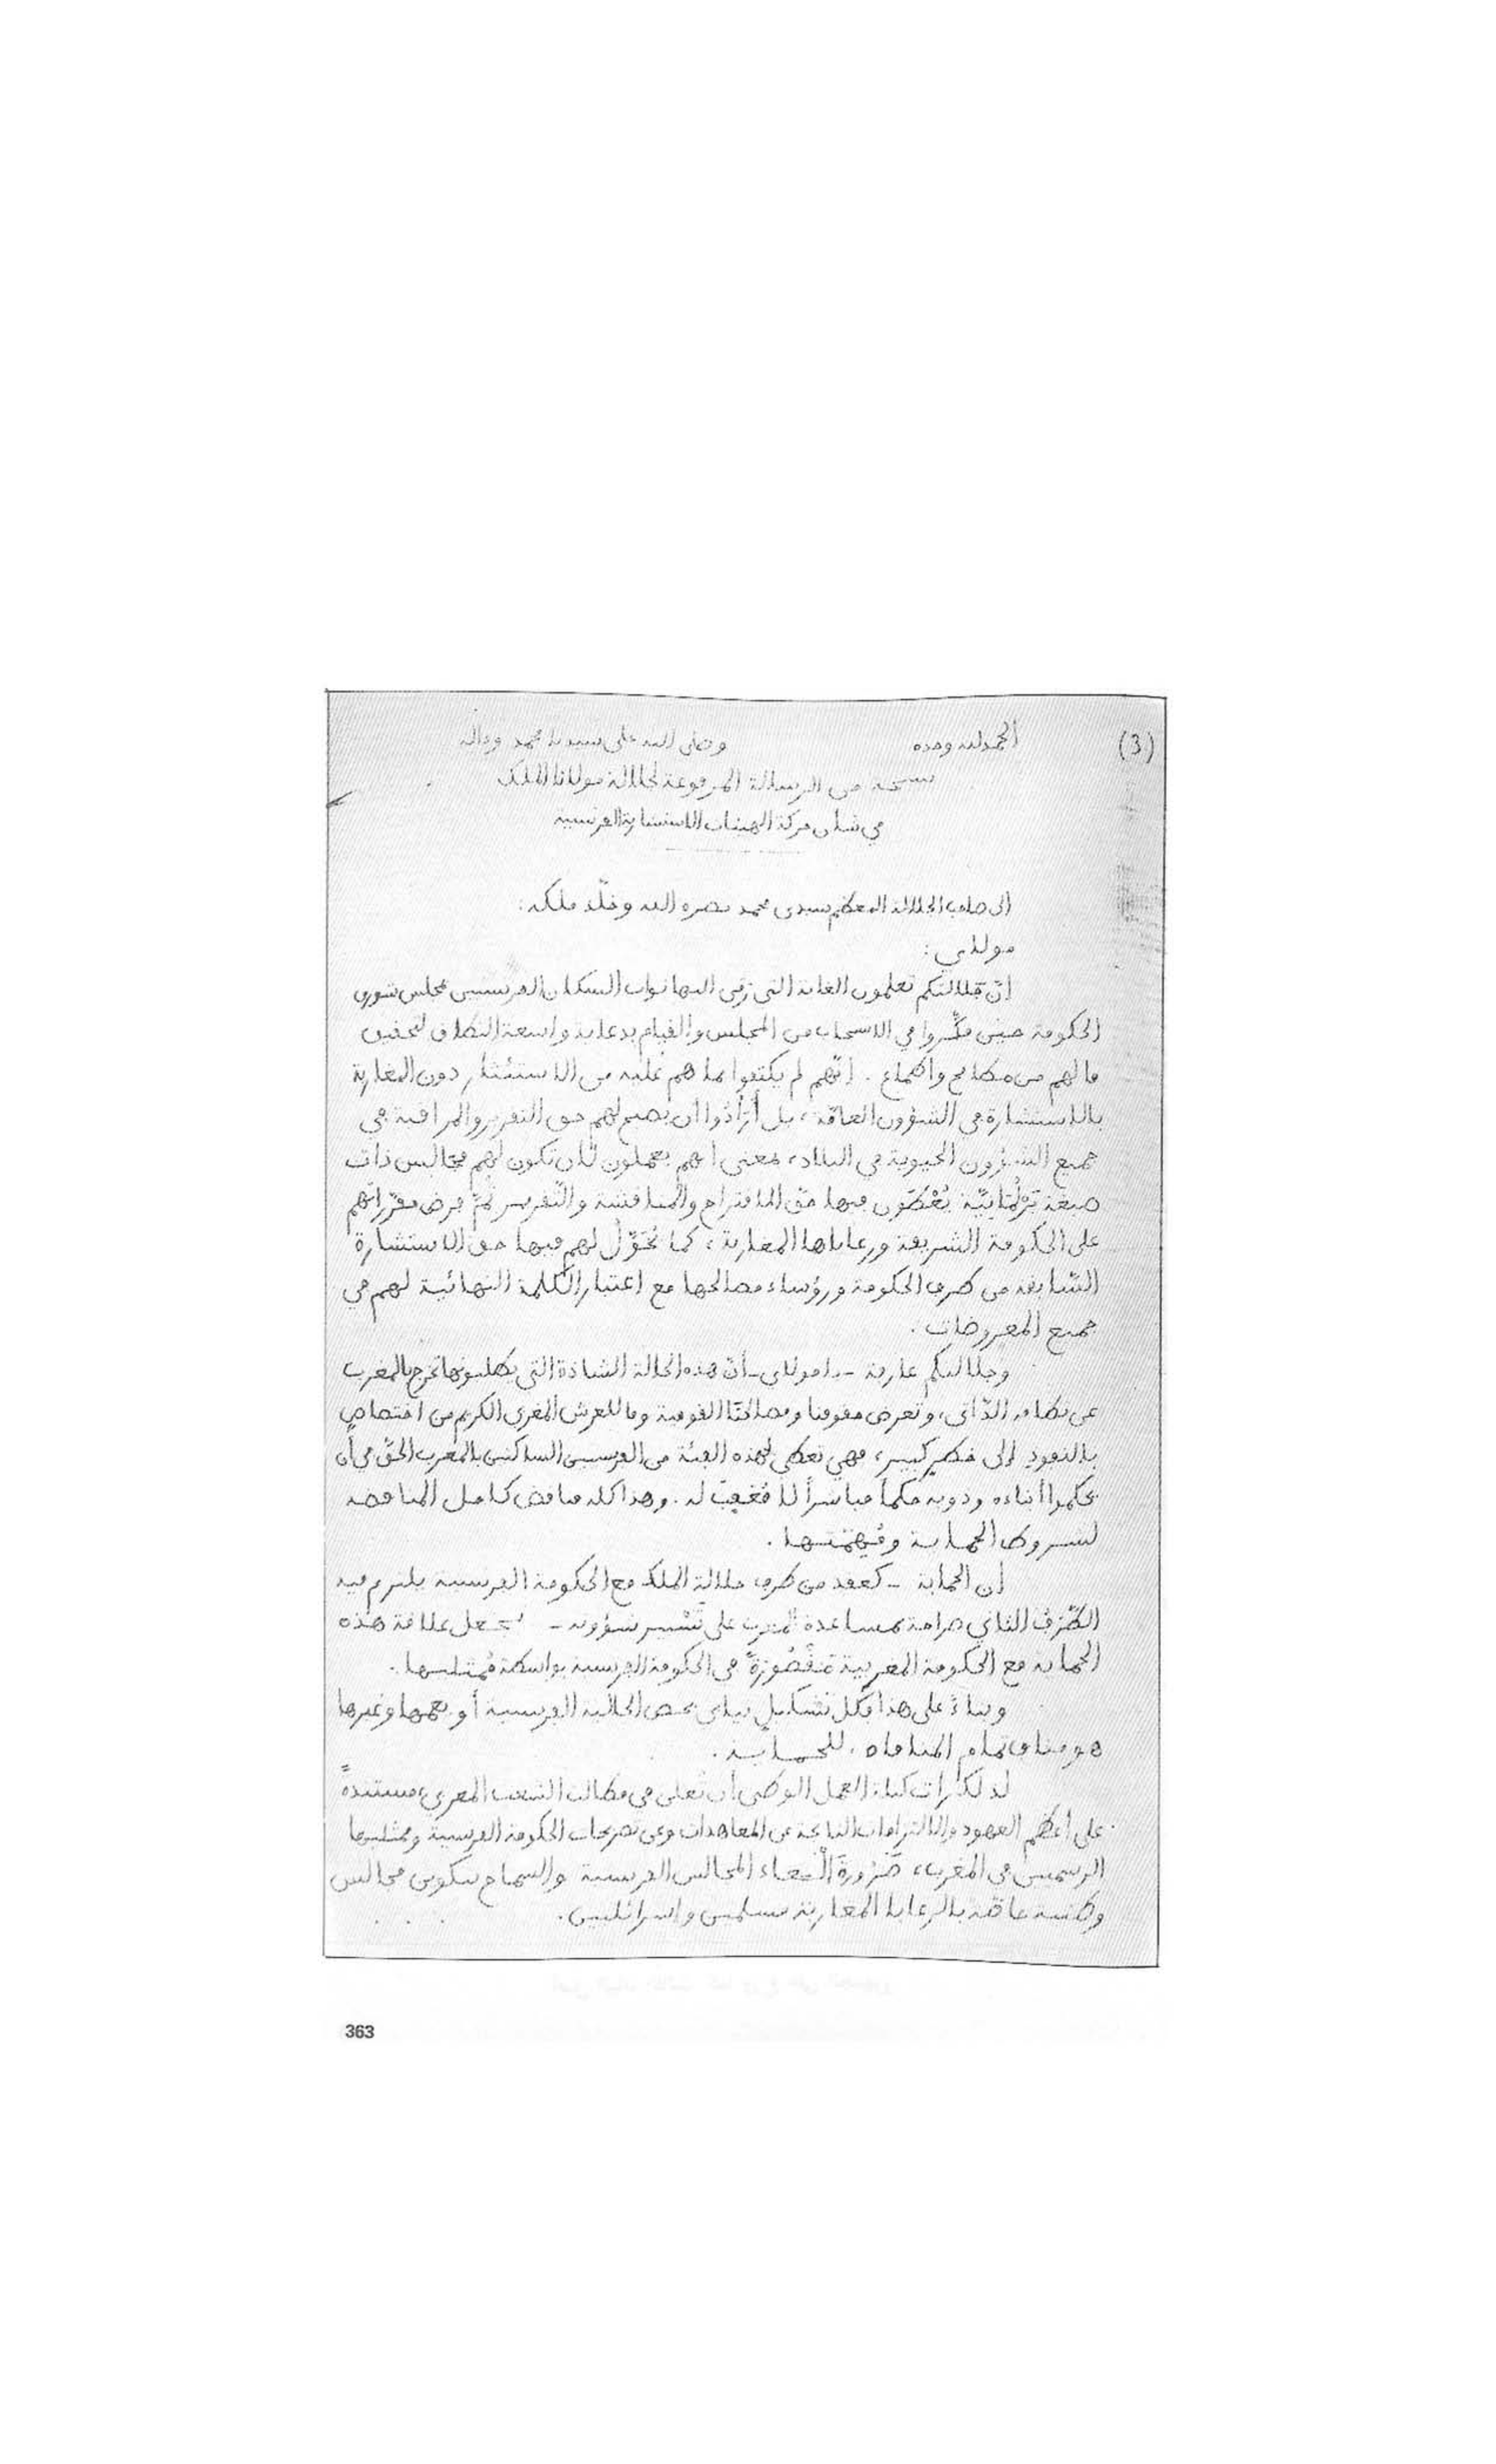 (3)
الحمد لله وحده وصلى الله على سيدنا محمد وءاله
نسخة من الرسالة المرفوعة لجلالة مولانا الملك
في شأن حركة الهيئات الاستشارية الفرنسية
إلى صاحب الجلالة المعظم سيدي محمد نصره الله وخلّد ملكه:
مولاي:
إنّ جلالتكم تعلمون الغاية التي رمى إليها نواب السكان الفرنسيين بمجلس شورى
الحكومة حينى فكّروا في الانسحاب من المجلس والقيام بدعاية واسعة النطاق لتحقيق
ما لهم من مطامح وأطماع. إنّهم لم يكتفوا بما هم عليه من الاستئثار دون المغاربة
بالاستشارة في الشؤون العامّة، بل أرَادُوا أن يصبح لهم حق التقرير والمراقبة في
جميع الشؤون الحيوية في البلاد، بمعنى أنهم يعملون لأن تكون لهم مجالس ذات
صبغة بَرْلُمَانِيّة يُعْطَوْن فيها حقّ الاقتراح والمناقشة والتّقرير ثمّ فرض مقرّراتهم
على الحكومة الشريفة ورعاياها المغاربة، كما تُخَوّلُ لهم فيها حق الاستشارة
السّابقة من طرف الحكومة ورؤساء مصالحها مع اعتبار الكلمة النهائية لهم في
جميع المعروضات.
وجلالتكم عارفة - يا مولاي - أنّ هذه الحالة الشاذة التي يطلبونها تخرج بالمغرب
عن نظامه الذّاتي، وتعرض حقوقنا ومصالحنَا القومية وما للعرش المغربي الكريم من اختصاصٍ
بالنفوذ إلى خطر كبير، فهي تعطي لهذه الفئة من الفرنسيين الساكنين بالمغرب الحقّ في أن
يحكموا أبناءه ودويه حكماً مباشراً لا مُعَقِّبَ له. وهذا كله مناقض كامل المناقضة
لشروط الحماية ومُهِمّتها.
أن الحماية - كعقد من طرف جلالة الملك مع الحكومة الفرنسية يلتزم فيه
الطّرَفُ الثاني صراحة بمساعدة المغرب على تَسْيير شؤونه - تجعل علاقة هذه
الحماية مع الحكومة المغربية مَقْصُورَةً في الحكومة الفرنسية بواسطة مُمثليها.
وبناءً على هذا فكل تشكيل نيابي يخص الجالية الفرنسية أو يعمها وغيرها
هو مناف تمام المنافاة، للحماية.
لذلك رأت كتلة العمل الوطني أن تُعلن في مطالب الشعب المغربي، مستندةً
على أعظم العهود والالتزامات الناتجة عن المعاهدات وعن تصريحات الحكومة الفرنسية وممثليها
الرسميين في المغرب، ضَرُورَةَ إلْغاء المجالس الفرنسية والسماح بتكوين مجالس
وطنية خاصّة بالرعايا المغاربة مسلمين وإسرائليين.
363